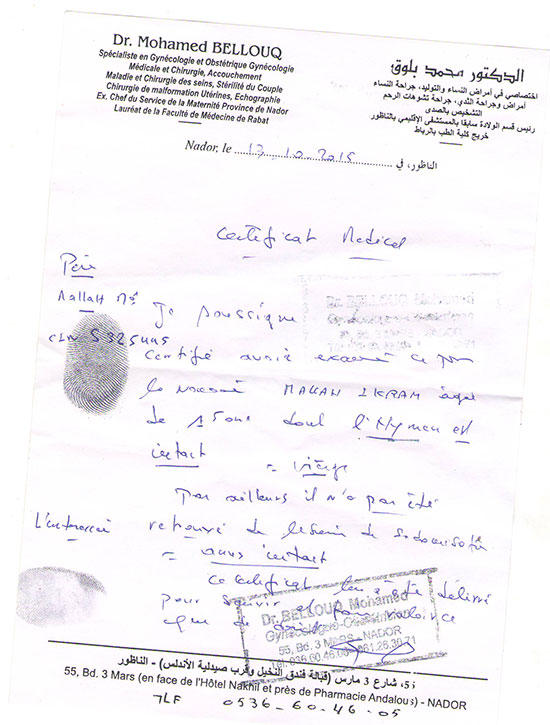 Dr. Mohamed BELLOUQ
Spécialiste en Gynécologie et Obstétrique Gynécologie
Médicale et Chirurgie, Accouchement
Maladie et Chirurgie des seins, Stérilité du Couple
Chirurgie de malformation Utérines, Echographie
Ex. Chef du Service de la Maternité Province de Nador
Lauréat de la Faculté de Médecine de Rabat
الدكتور محمد بلوق
اختصاصي في أمراض النساء والتوليد، جراحة النساء
أمراض وجراحة الثدي، جراحة تشوهات الرحم
التشخيص بالصدى
رئيس قسم الولادة سابقا بالمستشفى الإقليمي بالناظور
خريج كلية الطب بالرباط
Nador, le 13.10.2015 الناظور، في
Certificat Medical
Père
Mallah
CIN S 325445
Je soussigné
Dr. BELLOUQ Mohamed
Certifie avoir examiné ce jour
la nommée MALLAH IKRAM âgée
de 15 ans dont l'Hymen est
intact = vierge
Par ailleurs il n'a pas été
L'intéressée
retrouvé de lésion de sodomisation
= anus intact
Ce certificat lui a été délivré
pour servir et faire valoir ce
que de droit
Dr. BELLOUQ Mohamed
Gynécologie-Obstétricien
55, Bd. 3 Mars - NADOR
Tél. 036.60.46
55، شارع 3 مارس (قبالة فندق النخيل وقرب صيدلية الأندلس) - الناظور
55, Bd. 3 Mars (en face de l'Hôtel Nakhil et près de Pharmacie Andalous) - NADOR
TLF 0536-60-46-05